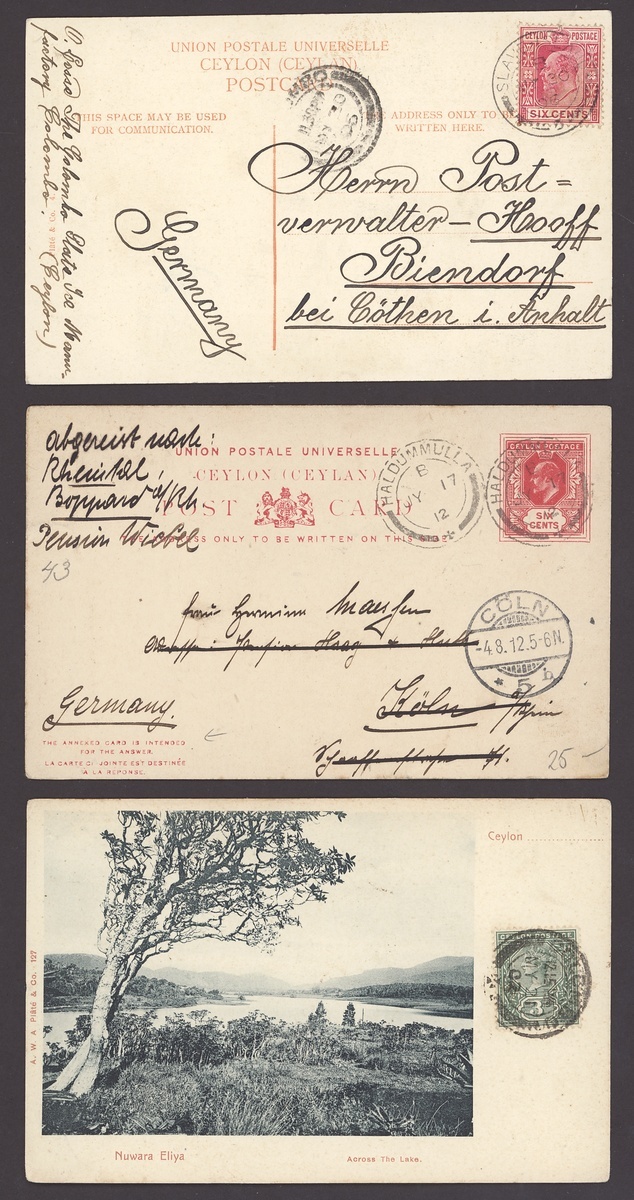 UNION POSTALE UNIVERSELLE
CEYLON (CEYLAN)
POSTCARD
THIS SPACE MAY BE USED
FOR COMMUNICATION.
ADDRESS ONLY TO BE
WRITTEN HERE.
CEYLON POSTAGE
SIX CENTS
O. Grosse The Colombo Slate Ice Manu-
factory (Colombo. (Ceylon)
Herrn Post=
verwalter-Hooff
Biendorf
bei Cöthen i. Anhalt
Germany
abgereist nach:
Rheintal
Boppard a/Rh
Pension
43
UNION POSTALE UNIVERSELLE
CEYLON (CEYLAN)
POST CARD
THE ADDRESS ONLY TO BE WRITTEN ON THIS SIDE
HALDUMMULLA
B
JY 17
12
CEYLON POSTAGE
SIX
CENTS
CÖLN
-4.8.12.5-6N.
* 5 b
Frau Hermine
Köln a/Rhein
Germany.
THE ANNEXED CARD IS INTENDED
FOR THE ANSWER.
LA CARTE CI JOINTE EST DESTINÉE
À LA RÉPONSE.
25-
Ceylon
CEYLON POSTAGE
A. W. A. Plâté & Co. 127
Nuwara Eliya
Across The Lake.